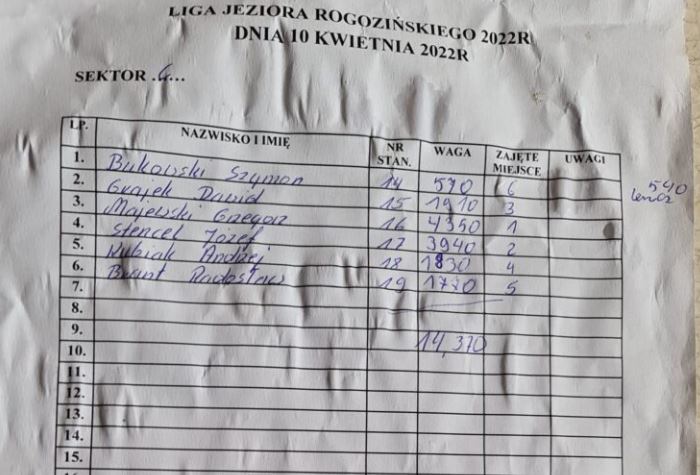 LIGA JEZIORA ROGOZIŃSKIEGO 2022R
DNIA 10 KWIETNIA 2022R
SEKTOR .G...
LP. NAZWISKO I IMIĘ NR STAN. WAGA ZAJĘTE MIEJSCE UWAGI
1. Bukowski Szymon 14 570 6
540
2. Grajek Dawid 15 1910 3
3. Majewski Grzegorz 16 4350 1
4. Stencel Józef 17 3940 2
5. Kubiak Andrzej 18 1830 4
6. Brant Radosław 19 1770 5
7.
8.
9. 14,370
10.
11.
12.
13.
14.
15.